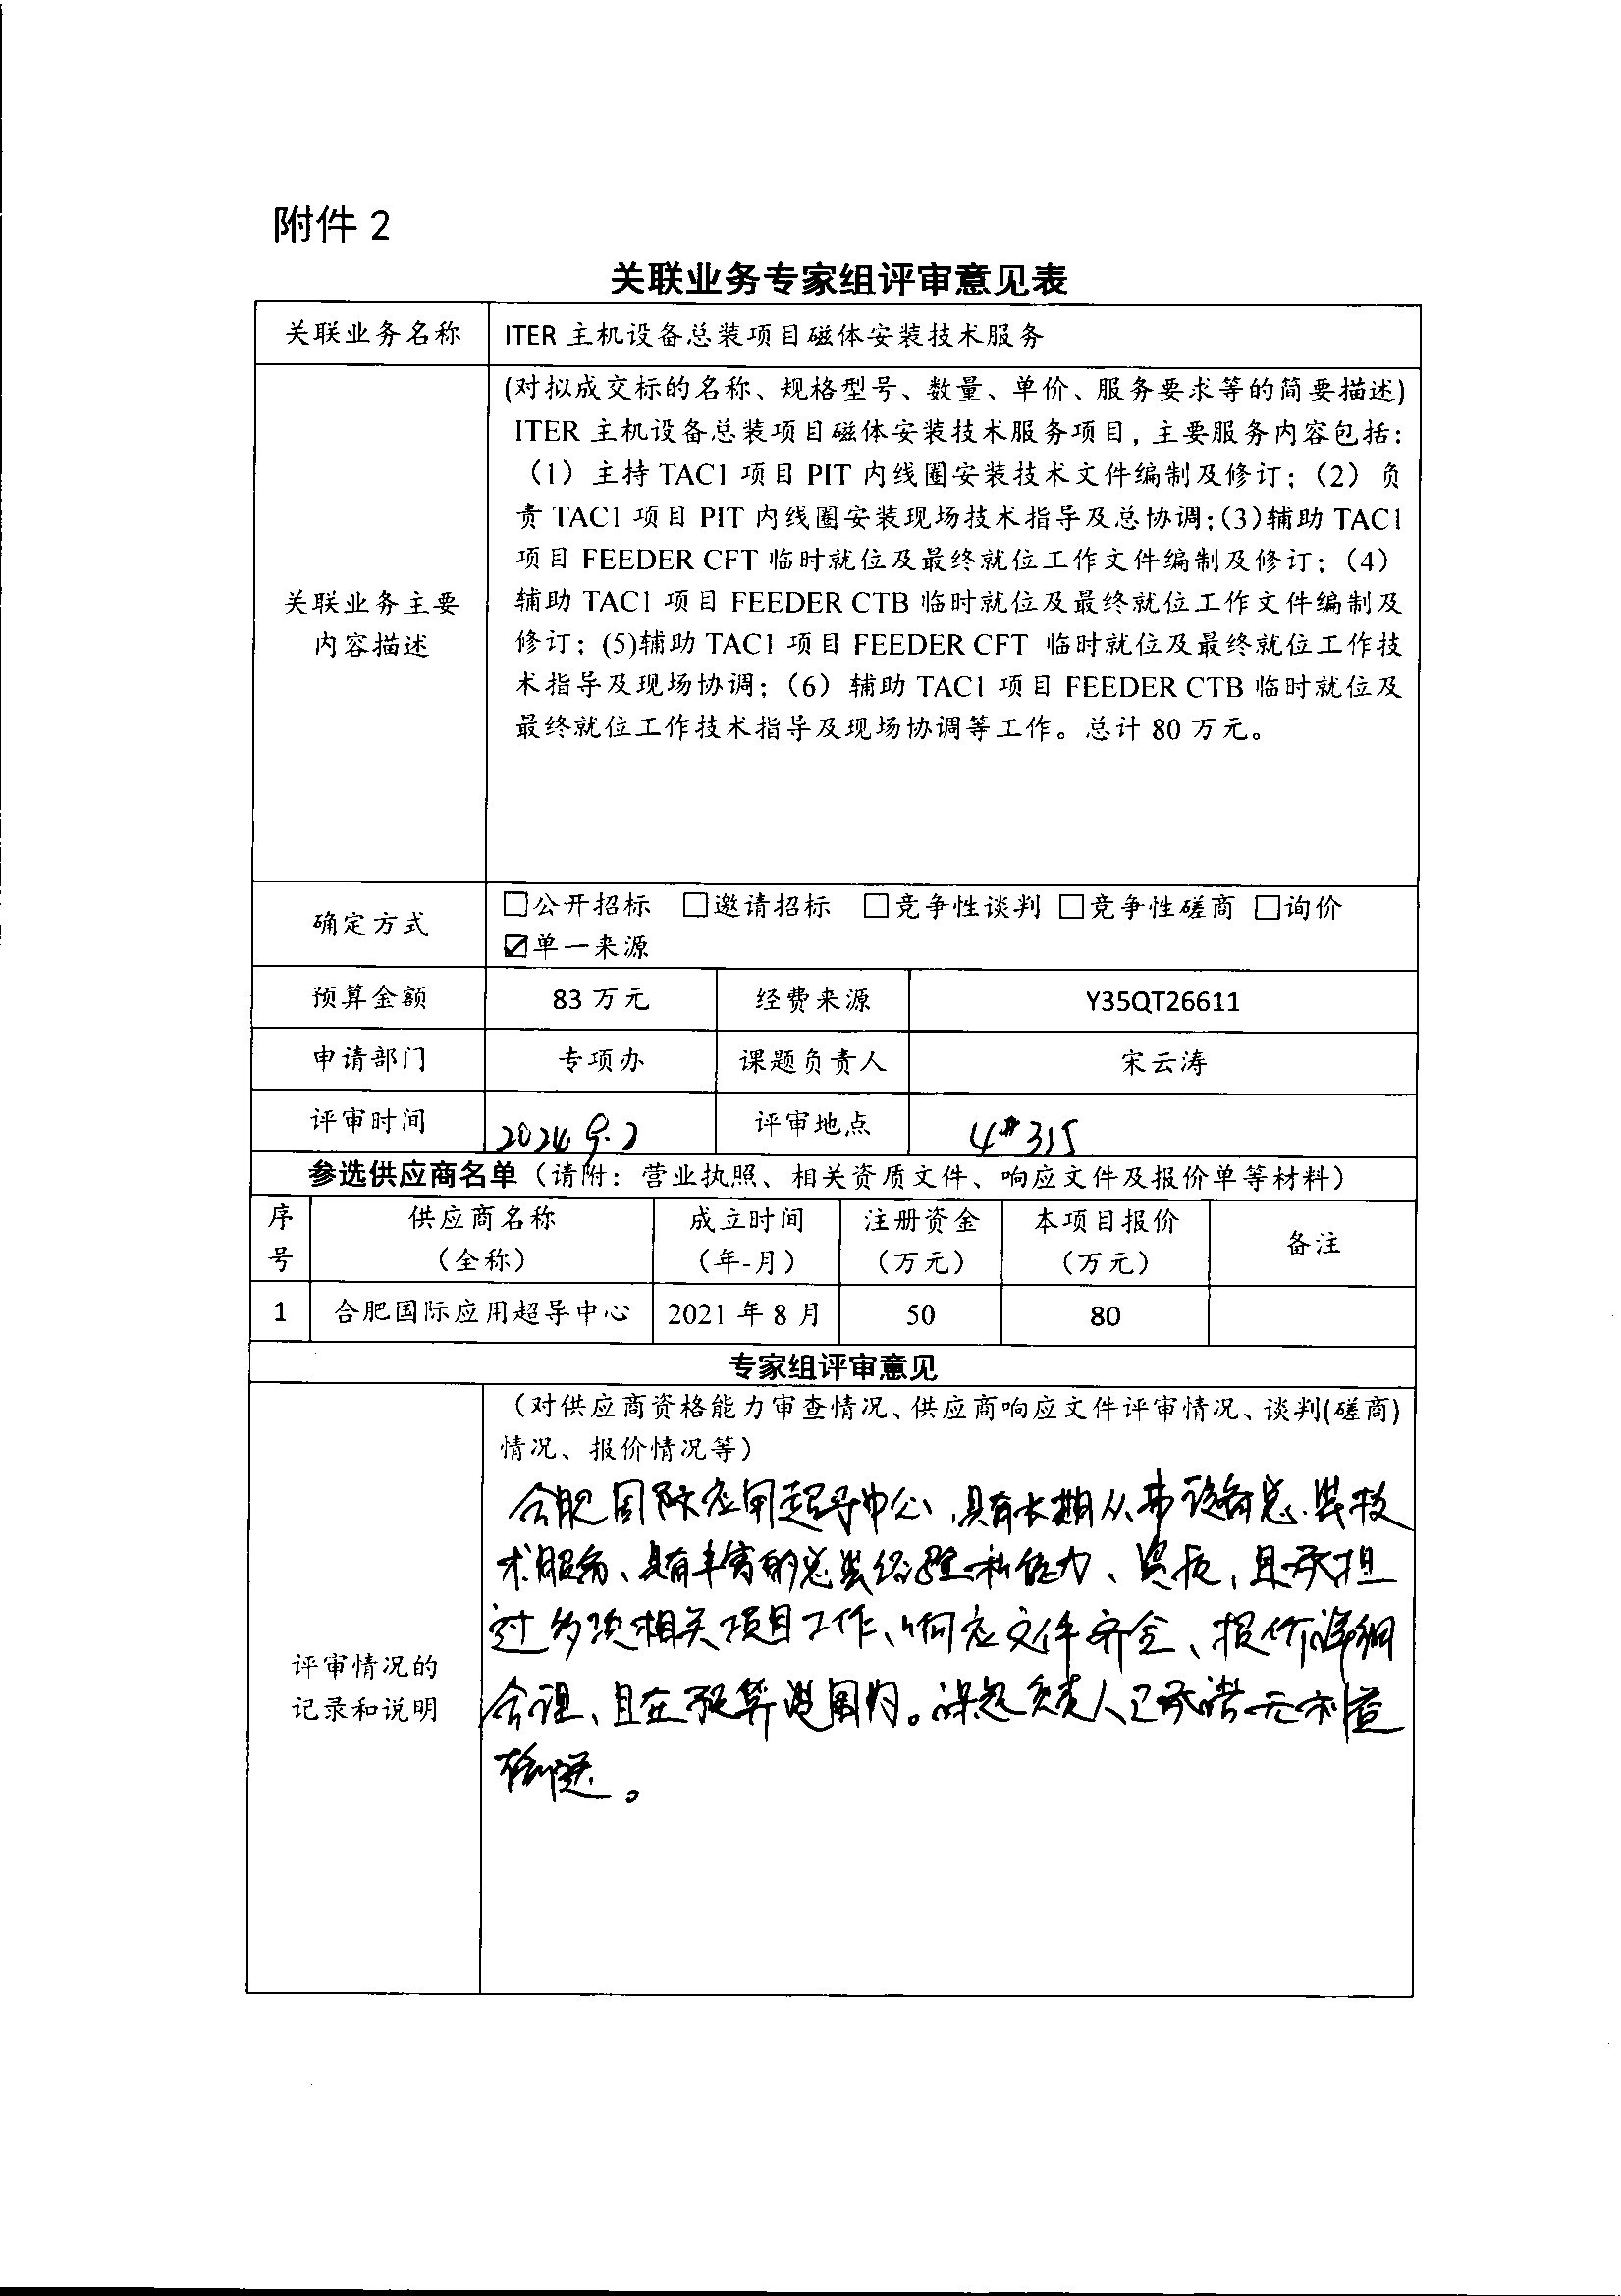 附件 2
关联业务专家组评审意见表
关联业务名称 ITER 主机设备总装项目磁体安装技术服务
(对拟成交标的名称、规格型号、数量、单价、服务要求等的简要描述)
ITER 主机设备总装项目磁体安装技术服务项目，主要服务内容包括：
（1）主持 TAC1 项目 PIT 内线圈安装技术文件编制及修订；（2）负
责 TAC1 项目 PIT 内线圈安装现场技术指导及总协调；(3)辅助 TAC1
项目 FEEDER CFT 临时就位及最终就位工作文件编制及修订；（4）
关联业务主要
辅助 TAC1 项目 FEEDER CTB 临时就位及最终就位工作文件编制及
内容描述
修订；(5)辅助 TAC1 项目 FEEDER CFT 临时就位及最终就位工作技
术指导及现场协调；（6）辅助 TAC1 项目 FEEDER CTB 临时就位及
最终就位工作技术指导及现场协调等工作。总计 80 万元。
确定方式
☐公开招标 ☐邀请招标 ☐竞争性谈判 ☐竞争性磋商 ☐询价
☑单一来源
预算金额 83 万元 经费来源 Y35QT26611
申请部门 专项办 课题负责人 宋云涛
评审时间 2024 9.2 评审地点 4#315
参选供应商名单（请附：营业执照、相关资质文件、响应文件及报价单等材料）
序 供应商名称 成立时间 注册资金 本项目报价 备注
号 （全称） （年-月） （万元） （万元）
1 合肥国际应用超导中心 2021 年 8 月 50 80
专家组评审意见
（对供应商资格能力审查情况、供应商响应文件评审情况、谈判(磋商)
情况、报价情况等）
合肥国际应用超导中心，具有长期从事设备总装技
术服务、具有丰富的总装经验和能力、资质，且承担
过多项相关项目工作、响应文件齐全、报价详细
评审情况的
记录和说明
合理、且在预算范围内。课题负责人已承诺无利益
输送。